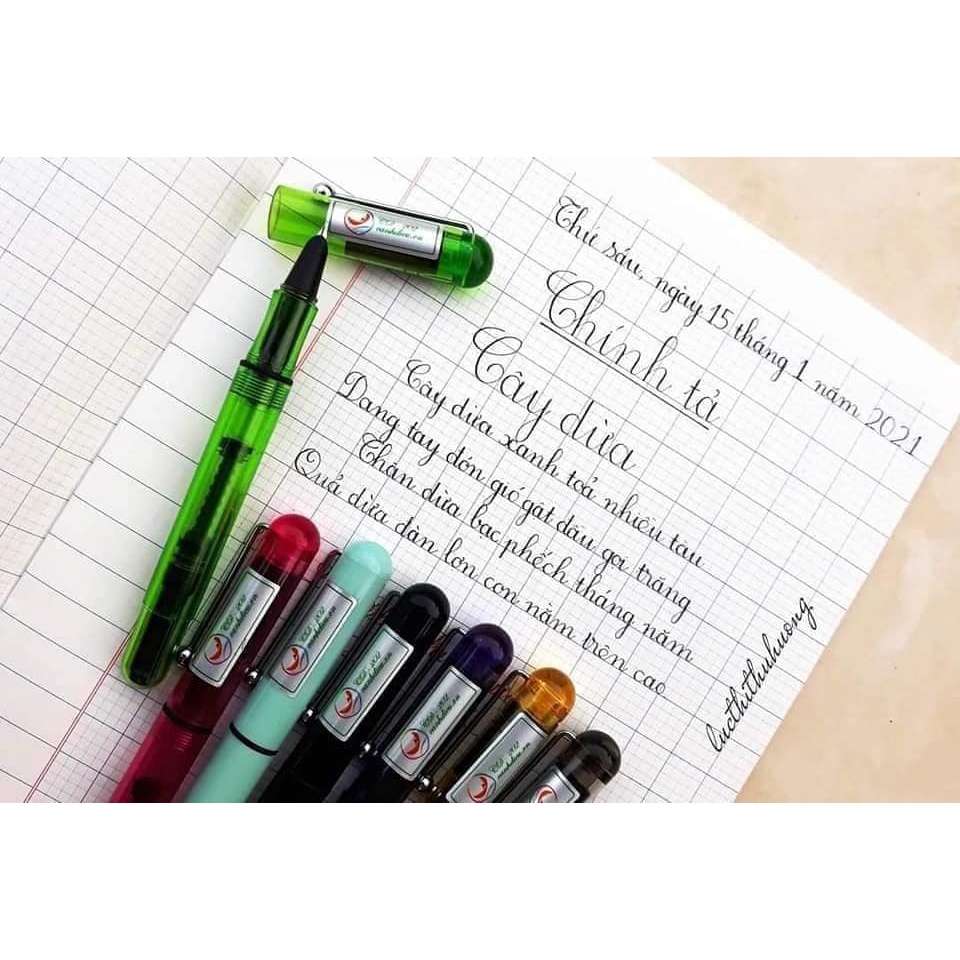 Thứ sáu, ngày 15 tháng 1 năm 2021
Chính tả
Cây dừa
Cây dừa xanh toả nhiều tàu
Dang tay đón gió gật đầu gọi trăng
Thân dừa bạc phếch tháng năm
Quả dừa đàn lợn con nằm trên cao
lucthithuhuong